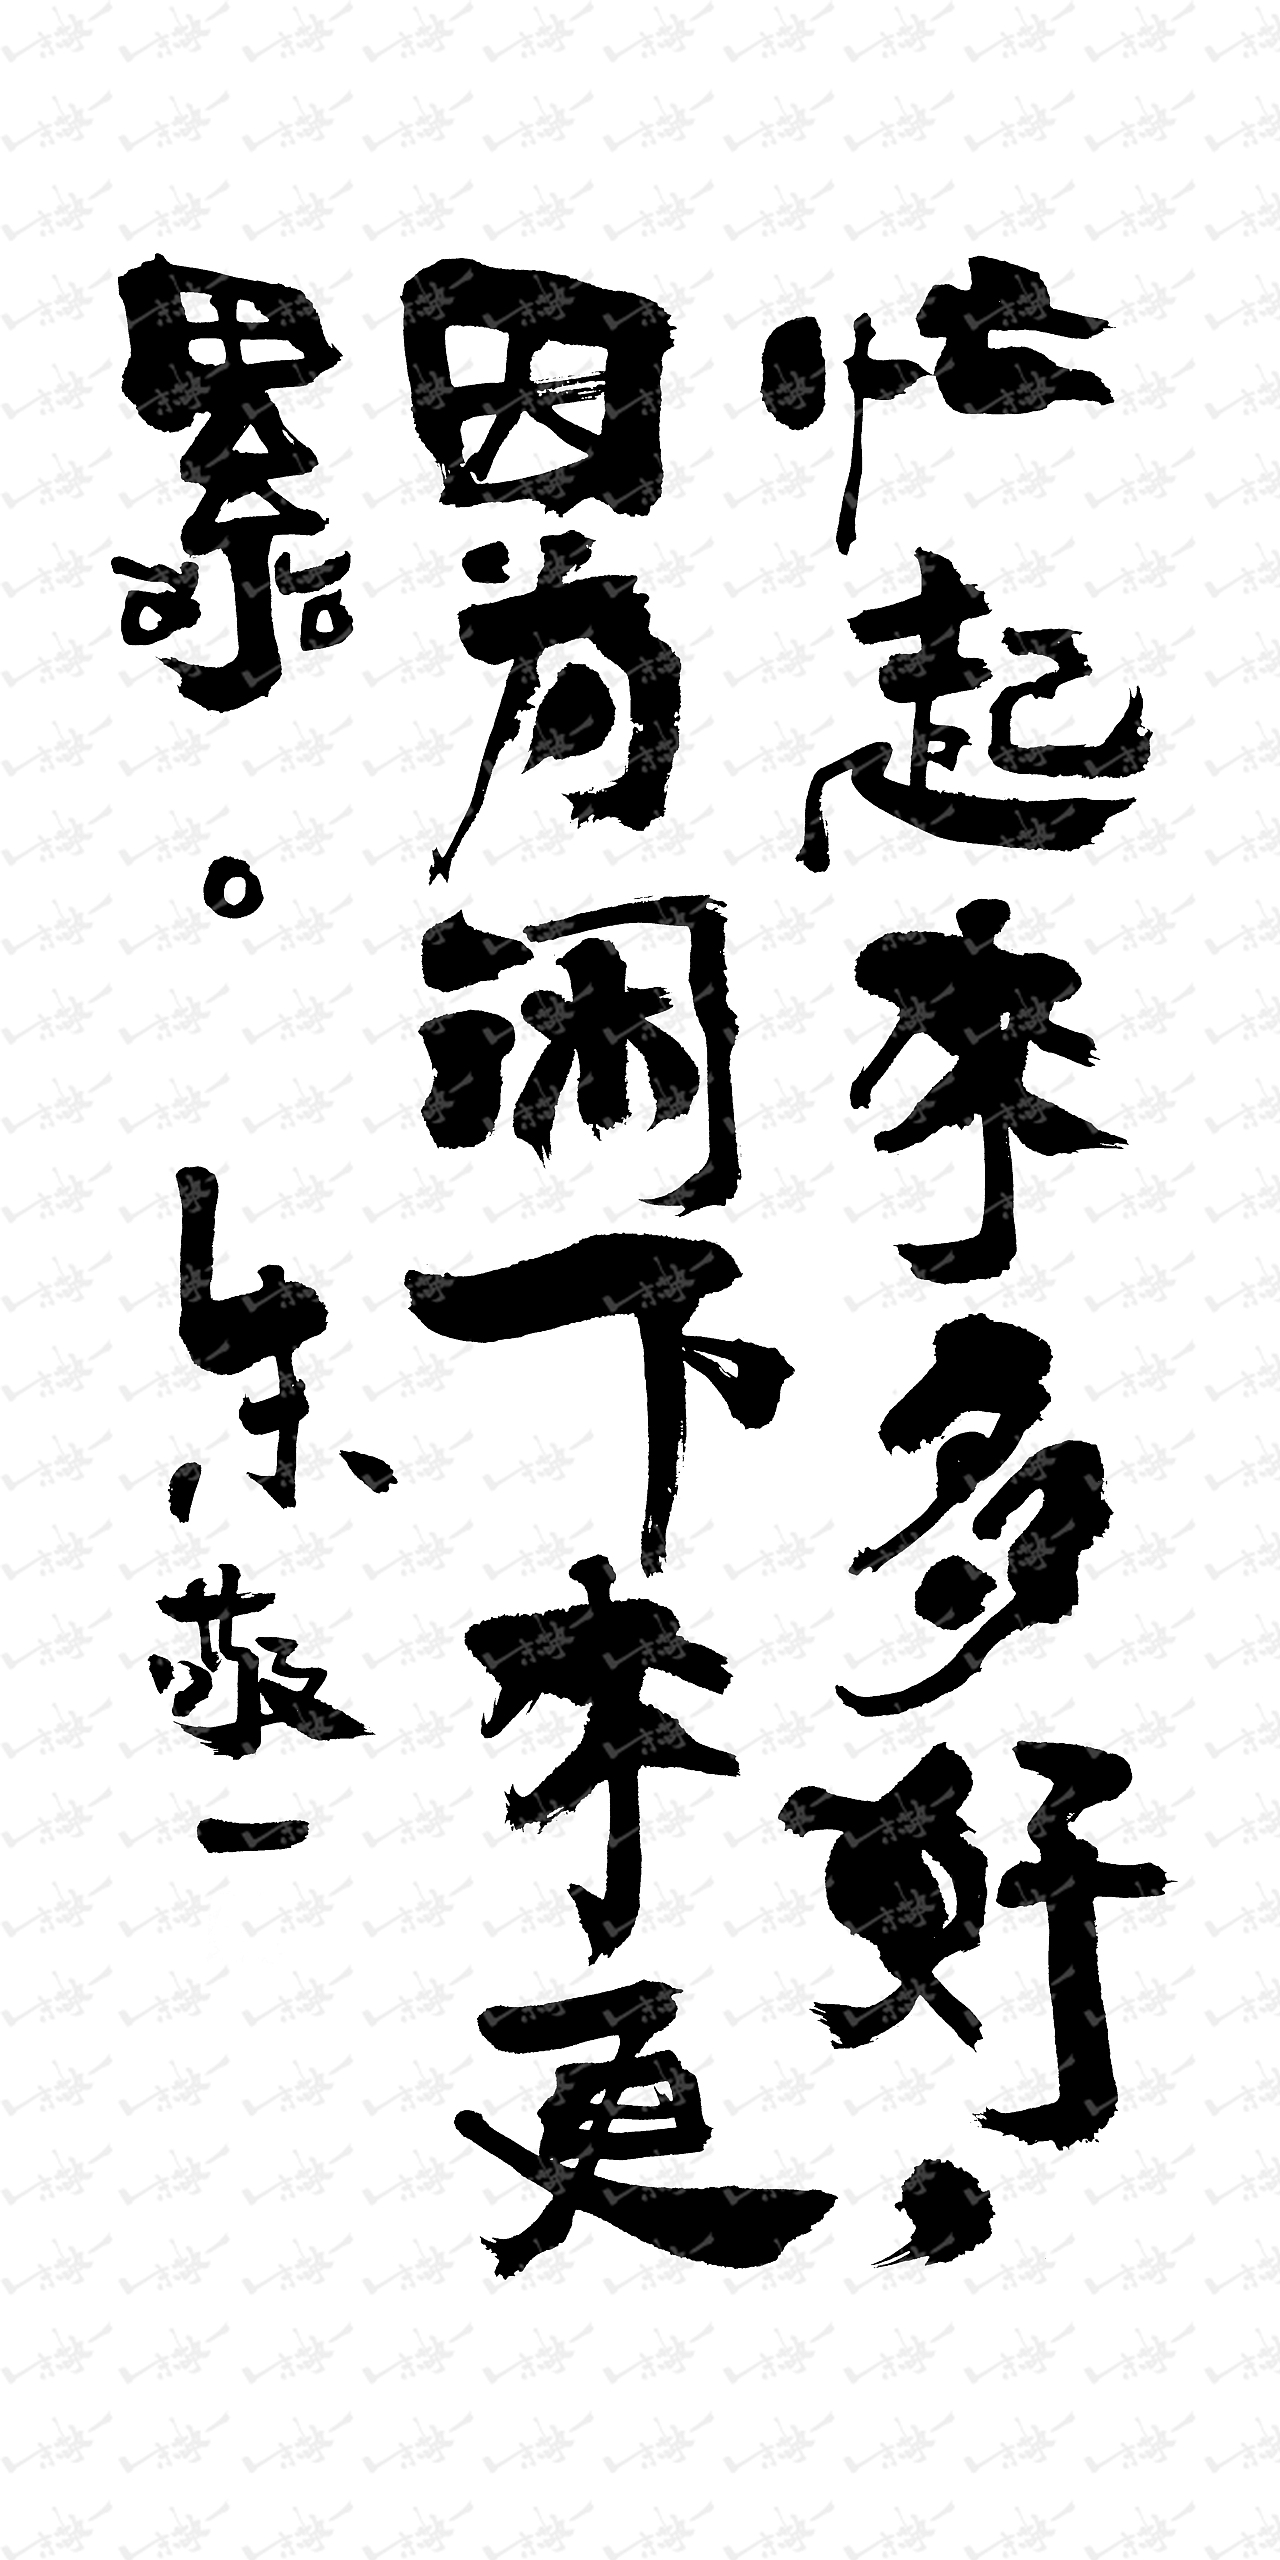 忙起來多好，
因为闲下來更
累。 朱敬一